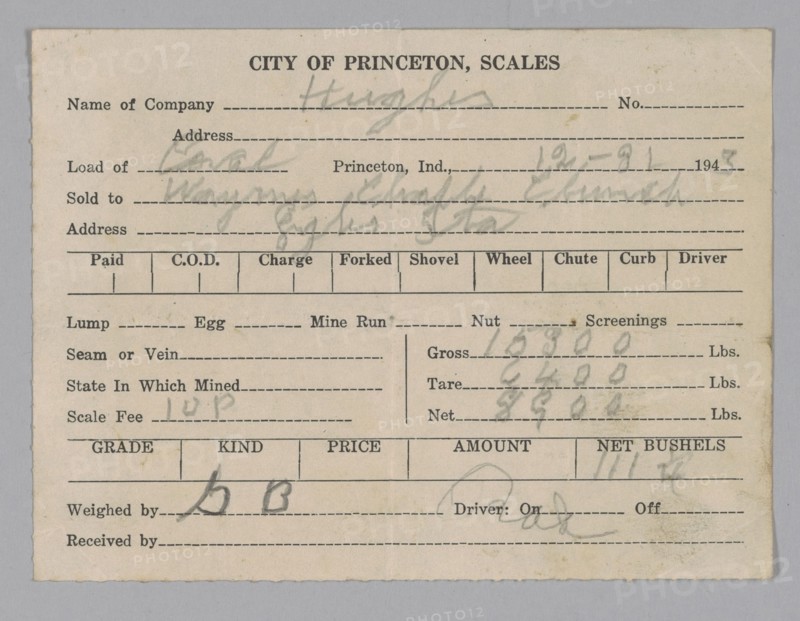 CITY OF PRINCETON, SCALES
Name of Company Hughes No.
Address
Load of Coal Princeton, Ind., 12-31 1943
Sold to Waymes Chapel Church
Address
Paid C.O.D. Charge Forked Shovel Wheel Chute Curb Driver
Lump Egg Mine Run Nut Screenings
Seam or Vein Gross 15300 Lbs.
State In Which Mined Tare 6400 Lbs.
Scale Fee 10 P Net 8900 Lbs.
GRADE KIND PRICE AMOUNT NET BUSHELS
111
Weighed by G B Driver: On Off
Received by
PHOTO12